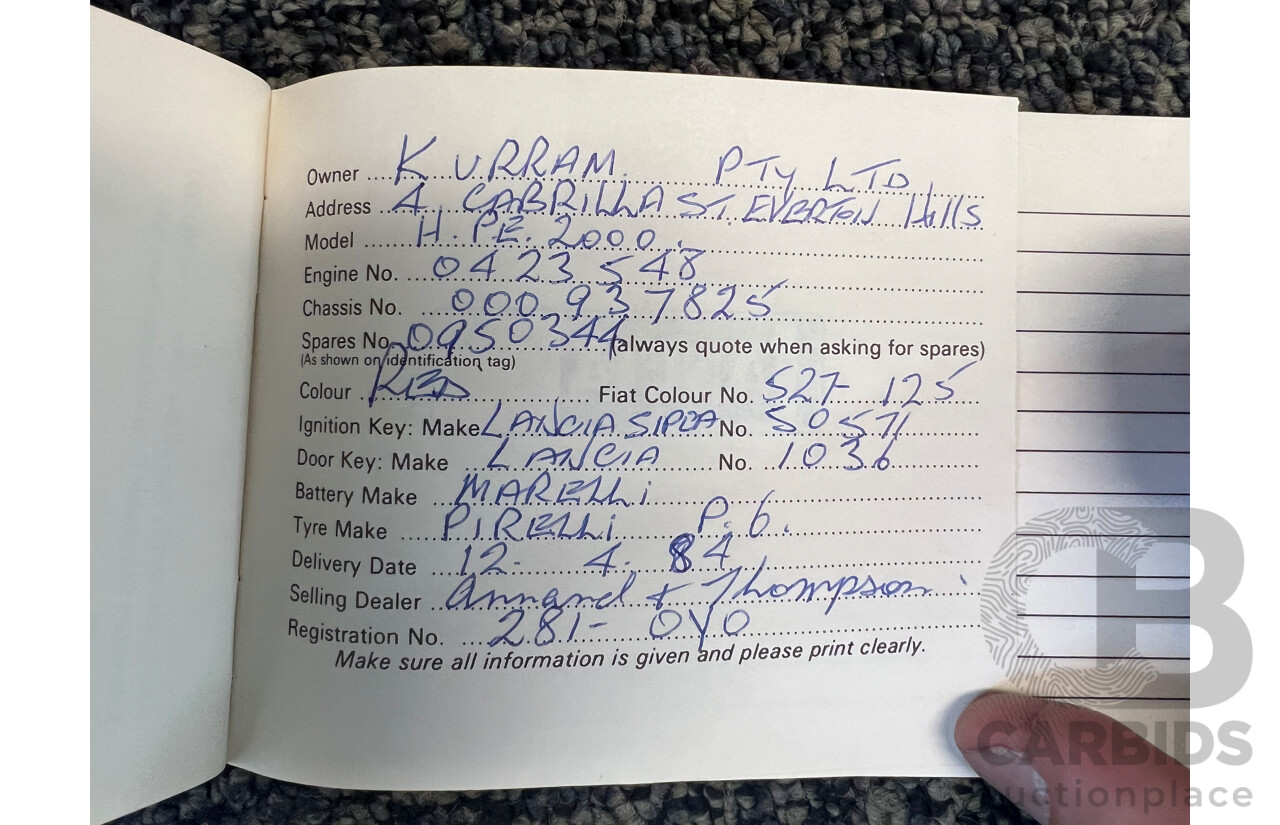 Owner .... KURRAM PTY LTD
Address .. 4 CABRILLA ST. EVERTON Hills
Model ...... H.PE. 2000.
Engine No. .... 0423548
Chassis No. 000937825
Spares No. 0950344 (always quote when asking for spares)
(As shown on identification tag)
Colour . RED .......... Fiat Colour No. 527-125
Ignition Key: Make LANCIA SIPEA No. 50571
Door Key: Make .. LANCIA ...... No. .. 1036
Battery Make .. MARELLi
Tyre Make .... PIRELLi P.6.
Delivery Date .. 12. 4. 84
Selling Dealer .. Annand & Thompson
Registration No. ... 281-OYO
Make sure all information is given and please print clearly.
CB
CARBIDS
auctionplace